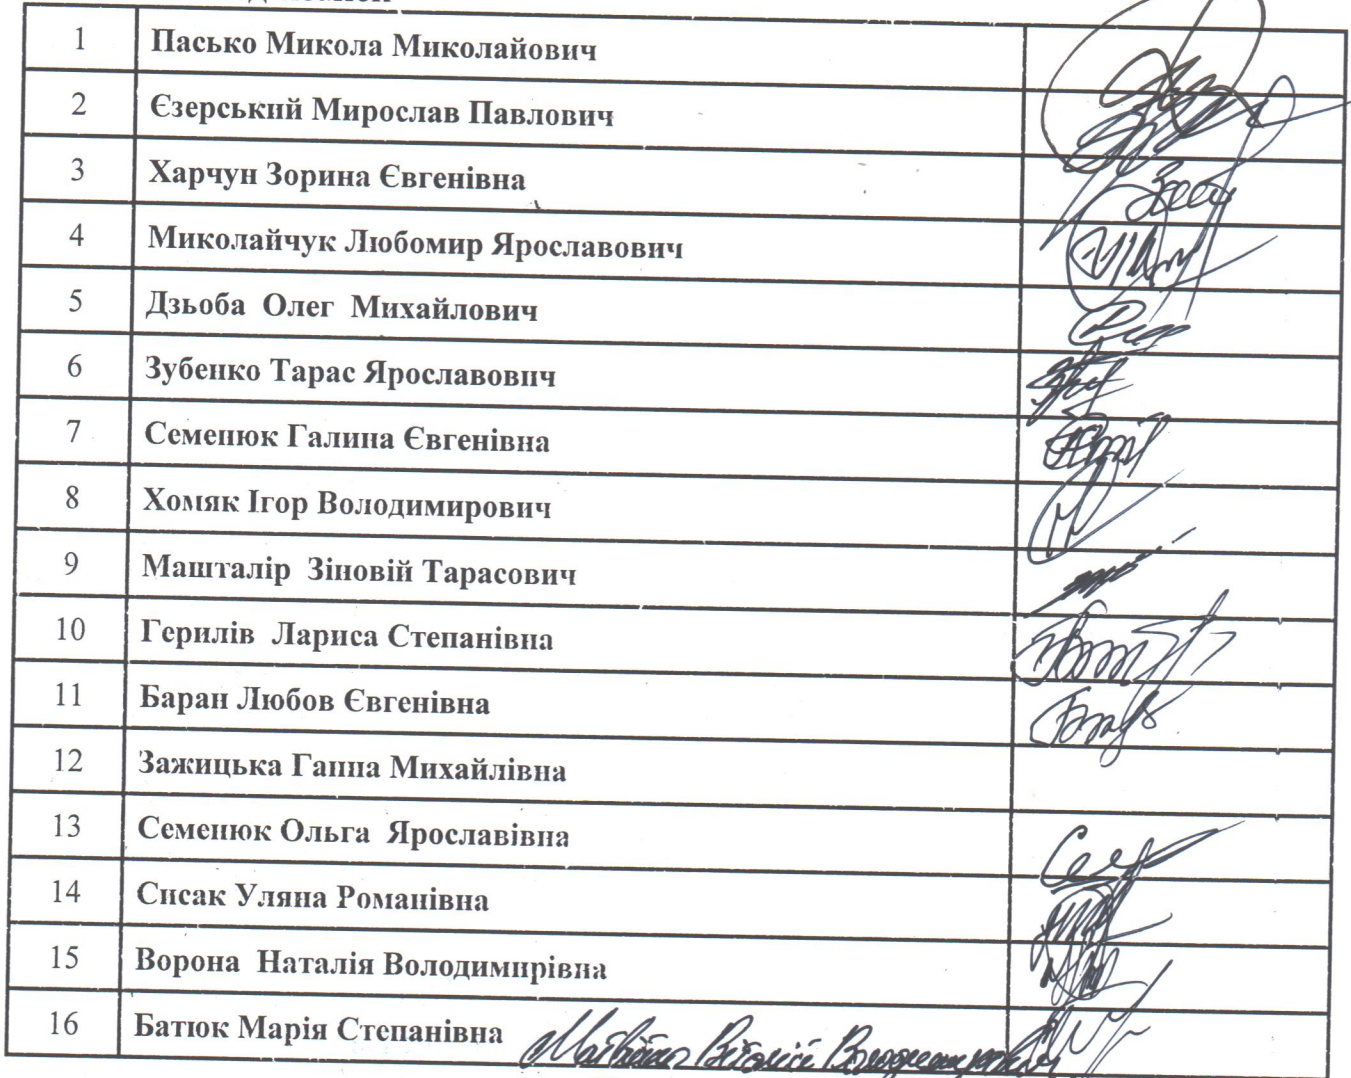 1 Пасько Микола Миколайович
2 Єзерський Мирослав Павлович
3 Харчун Зорина Євгенівна
4 Миколайчук Любомир Ярославович
5 Дзьоба Олег Михайлович
6 Зубенко Тарас Ярославович
7 Семенюк Галина Євгенівна
8 Хомяк Ігор Володимирович
9 Машталір Зіновій Тарасович
10 Герилів Лариса Степанівна
11 Баран Любов Євгенівна
12 Зажицька Ганна Михайлівна
13 Семенюк Ольга Ярославівна
14 Сисак Уляна Романівна
15 Ворона Наталія Володимирівна
16 Батюк Марія Степанівна